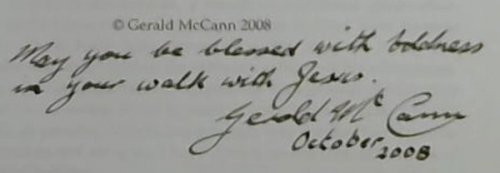 © Gerald McCann 2008
May you be blessed with boldness
in your walk with Jesus.
Gerald Mc Cann
October 2008